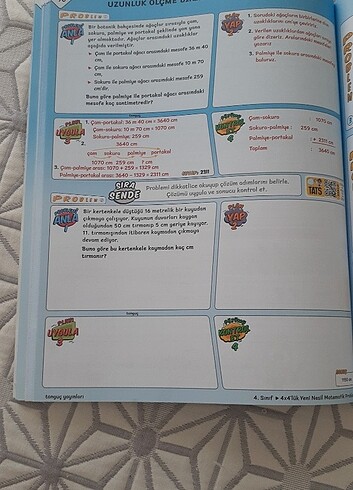 UZUNLUK ÖLÇME
PROBLEM
ANLA
Bir botanik bahçesinde ağaçlar sırasıyla çam,
sakura, palmiye ve portakal şeklinde yan yana
yer almaktadır. Ağaçlar arasındaki uzaklıklar
aşağıda verilmiştir.
Çam ile portakal ağacı arasındaki mesafe 36 m 40
cm,
Çam ile sakura ağacı arasındaki mesafe 10 m 70
cm,
Sakura ile palmiye ağacı arasındaki mesafe 259
cm'dir.
Buna göre palmiye portakal ağacı arasındaki
mesafe kaç santimetredir?
YAP
2
1. Sorudaki ağaçların birbirlerine olan
uzaklıklarını cm'ye çeviririz.
2. Verilen uzaklıklardan ağaçları
göre dizeriz. Aralarındaki mesafeleri
yazarız
3. Palmiye ile sakura arasındaki mesafeyi
buluruz.
UYGULA
3
1. Çam-portakal: 36 m 40 cm = 3640 cm
Çam-sakura: 10 m 70 cm = 1070 cm
Sakura-palmiye: 259 cm
2.
3640 cm
çam sakura palmiye portakal
1070 cm 259 cm ? cm
3. Çam-palmiye arası: 1070 + 259 = 1329 cm
Palmiye-portakal arası: 3640 - 1329 = 2311 cm
2311
KONTROL
ET
4
Çam-sakura : 1070 cm
Sakura-palmiye : 259 cm
Palmiye-portakal : + 2311 cm
Toplam 3640 cm
PROBLEM
SIRA
SENDE
Problemi dikkatlice okuyup çözüm adımlarını belirle.
Çözümü uygula ve sonucu kontrol et.
TATS
ANLA
Bir kertenkele düştüğü 16 metrelik bir kuyudan
çıkmaya çalışıyor. Kuyunun duvarları kaygan
olduğundan 50 cm tırmanıp 5 cm geriye kayıyor.
11. tırmanışından itibaren kaymadan çıkmaya
devam ediyor.
Buna göre bu kertenkele kaymadan kaç cm
tırmanır?
YAP
2
UYGULA
3
KONTROL
ET
4
tonguç yayınları
4. Sınıf 4x4'lük Yeni Nesil Matematik